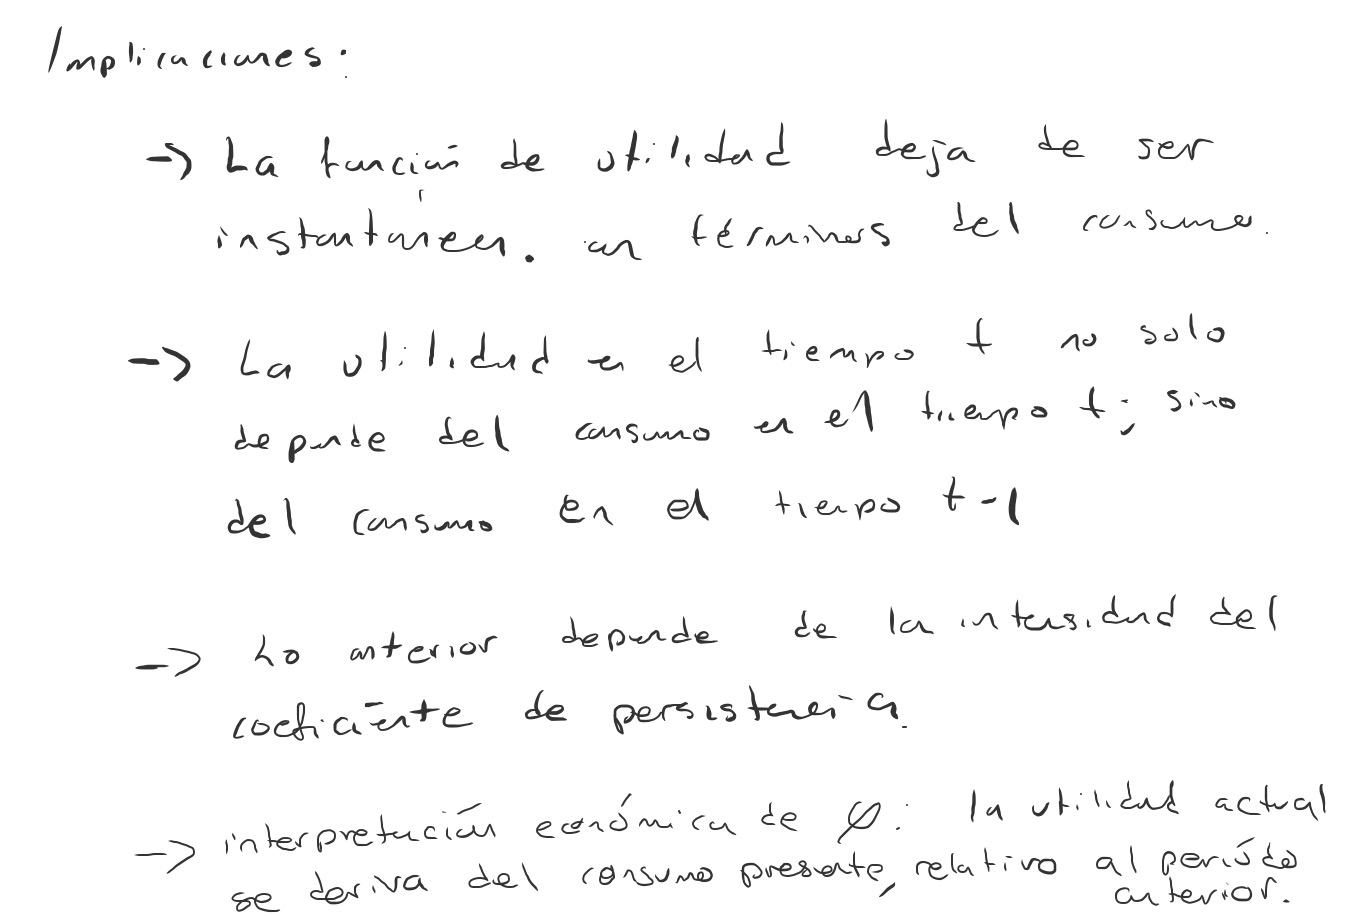 Implicaciones:
-> La función de utilidad deja de ser
instantánea. en términos del consumo.
-> La utilidad en el tiempo t no solo
depende del consumo en el tiempo t; sino
del consumo en el tiempo t-1
-> Lo anterior depende de la intensidad del
coeficiente de persistencia.
-> interpretación económica de φ: la utilidad actual
se deriva del consumo presente, relativo al periódo
anterior.